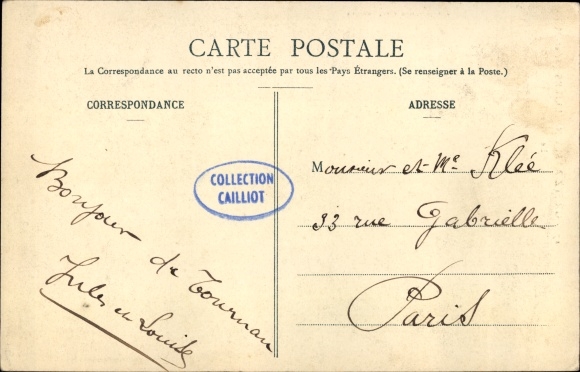 CARTE POSTALE
La Correspondance au recto n'est pas acceptée par tous les Pays Étrangers. (Se renseigner à la Poste.)
CORRESPONDANCE
ADRESSE
Bonjour de Tournan
Jules et Louise
COLLECTION
CAILLIOT
Monsieur et Me Kléé
33 rue Gabrielle
Paris